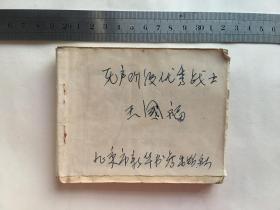 无产阶级优秀战士
王国福
北京市新华书店